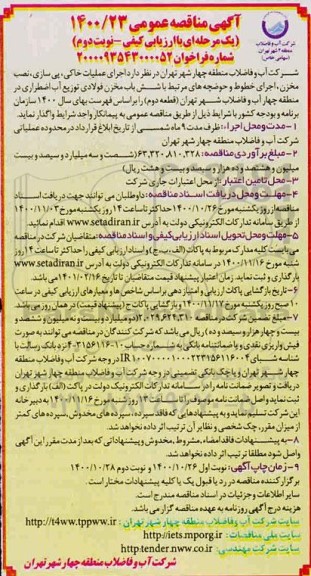 آگهی مناقصه عمومی ۱۴۰۰/۲۳
(یک مرحله‌ای با ارزیابی کیفی - نوبت دوم)
شماره فراخوان ۲۰۰۰۰۹۳۵۴۳۰۰۰۰۵۲
شرکت آب و فاضلاب
منطقه ۴ شهر تهران
(سهامی خاص)
شرکت آب و فاضلاب منطقه چهار شهر تهران در نظر دارد اجرای عملیات خاکی، پی سازی، نصب
مخزن، اجرای خطوط و حوضچه های مرتبط با شش باب مخزن فولادی توزیع آب اضطراری در
منطقه چهار آب و فاضلاب شهر تهران (قطعه دوم) را بر اساس فهرست بهای سال ۱۴۰۰ سازمان
برنامه و بودجه کشور با شرایط ذیل از طریق مناقصه عمومی به پیمانکار واجد شرایط واگذار نماید.
۱- مدت و محل اجراء: ظرف مدت ۹ ماه شمسی از تاریخ ابلاغ قرارداد در محدوده عملیاتی
شرکت آب و فاضلاب منطقه چهار شهر تهران
۲- مبلغ برآوردی مناقصه: ۶۳,۳۲۰,۸۱۰,۳۲۸ (شصت و سه میلیارد و سیصد و بیست
میلیون و هشتصد و ده هزار و سیصد و بیست و هشت ریال)
۳- محل تامین اعتبار: از محل اعتبارات جاری شرکت
۴- مهلت و محل دریافت اسناد مناقصه: داوطلبان می توانند جهت دریافت اسناد
مناقصه از روز یکشنبه مورخ ۱۴۰۰/۱۰/۲۶ حداکثر تا ساعت ۱۴ روز یکشنبه مورخ ۱۴۰۰/۱۱/۰۳
از طریق سامانه تدارکات الکترونیکی دولت به آدرس www.setadiran.ir اقدام نمایند.
۵- مهلت و محل تحویل اسناد ارزیابی کیفی و اسناد مناقصه: متقاضیان شرکت در مناقصه
می بایست کلیه مدارک مربوط به پاکات (الف-ب-ج) و اسناد ارزیابی کیفی را حداکثر تا ساعت ۱۴ روز
شنبه مورخ ۱۴۰۰/۱۱/۱۶ در سامانه تدارکات الکترونیکی دولت به آدرس www.setadiran.ir
بارگذاری و ثبت نماید. زمان اعتبار پیشنهاد قیمت متقاضیان تا تاریخ ۱۴۰۱/۰۲/۱۶ می باشد.
۶- تاریخ بازگشایی پاکات ارزیابی و امتیازدهی بر اساس شاخص ها و معیارهای ارزیابی کیفی در ساعت
۱۰ صبح روز یکشنبه مورخ ۱۴۰۰/۱۱/۱۷ و بازگشایی پاکات ج (پیشنهاد قیمت) در همان روز می باشد.
۷- مبلغ تضمین شرکت در مناقصه (دو میلیارد و بیست و نه میلیون و ششصد و
بیست و چهار هزار و سیصد و ده) ریال می باشد که شرکت کنندگان در مناقصه می توانند به صورت
فیش واریزی نقدی و یا ضمانتنامه بانکی به شماره حساب نزد بانک رسالت با
شناسه شبای در وجه شرکت آب و فاضلاب منطقه
چهار شهر تهران و یا چک بانکی تضمینی در وجه شرکت آب و فاضلاب منطقه چهار شهر تهران
دریافت و تصویر ضمانت نامه را در سامانه تدارکات الکترونیک دولت در پاکت (الف) بارگذاری و
ثبت نماید و اصل ضمانت نامه موصوف را تا ساعت ۱۴ روز شنبه مورخ ۱۴۰۰/۱۱/۱۶ به دبیرخانه
این شرکت تسلیم نماید و به پیشنهادهایی که فاقد سپرده، سپرده های مخدوش، سپرده های کمتر
از میزان مقرر، چک شخصی و نظایر آن ترتیب اثر داده نخواهد شد.
۸- به پیشنهادات فاقد امضاء، مشروط، مخدوش و پیشنهاداتی که بعد از مدت مقرر این آگهی
واصل شود مطلقا ترتیب اثر داده نخواهد شد.
۹- زمان چاپ آگهی: نوبت اول ۱۴۰۰/۱۰/۲۶ و نوبت دوم ۱۴۰۰/۱۰/۲۸
برگزار کننده مناقصه در رد یا قبول یک یا کلیه پیشنهادات مختار است.
سایر اطلاعات و جزئیات در اسناد مناقصه مندرج است.
هزینه درج آگهی روزنامه به عهده مناقصه گزار می باشد.
سایت شرکت آب و فاضلاب منطقه چهار شهر تهران : http://t4ww.tppww.ir
سایت ملی مناقصات : http://iets.mporg.ir
سایت شرکت مهندسی: http:tender.nww.co.ir
شرکت آب و فاضلاب منطقه چهار شهر تهران